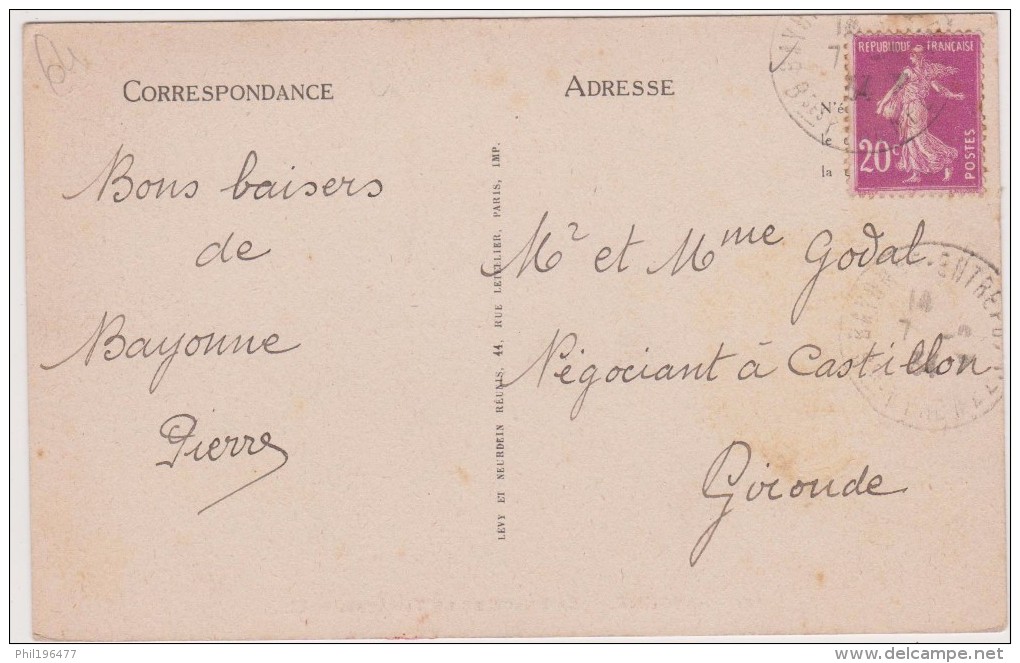 64
CORRESPONDANCE
Bons baisers
de
Bayonne
Pierre
LEVY ET NEURDEIN RÉUNIS, 44, RUE LETELLIER, PARIS, IMP.
ADRESSE
N'é
la
REPUBLIQUE FRANÇAISE
20c
POSTES
Mr et Mme Godal
Négociant à Castillon
Gironde
14
7
BAYONNE-ENTREPOT
14
7
Phil196477
delcampe.net